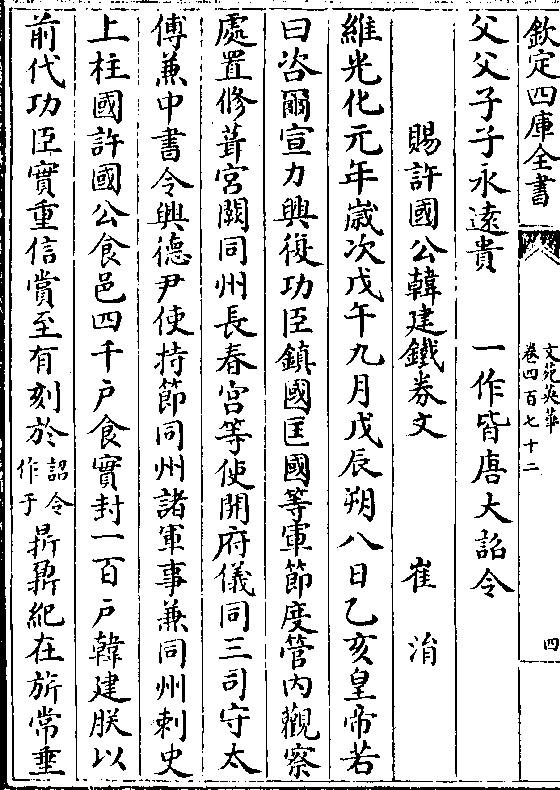 欽定四庫全書
文苑英華
卷四百七十二
四
父父子子永遠貴　一作皆唐大詔令
賜許國公韓建鐵券文　崔涓
維光化元年歲次戊午九月戊辰朔八日乙亥皇帝若
曰咨爾宣力興復功臣鎮國匡國等軍節度管內觀察
處置修葺宮闕同州長春宮等使開府儀同三司守太
傅兼中書令興德尹使持節同州諸軍事兼同州刺史
上柱國許國公食邑四千戶食實封一百戶韓建朕以
前代功臣實重信賞至有刻於詔令作于鼎鼐紀在旂常垂